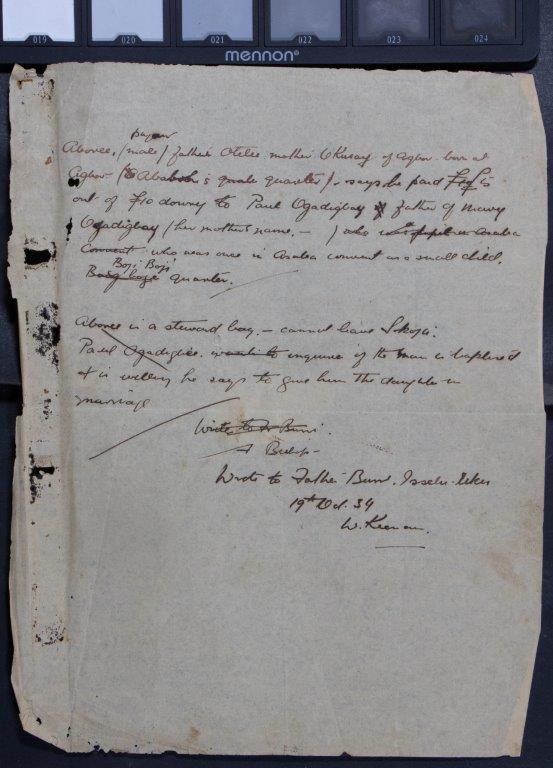 019 020 021 022 023 024
mennon
pagan
Aboree, (male) father Otele mother of Agbor born at
Agbor ( 's quarter) - says he paid
out of £10 dowry to Paul Ogadigbay father of Mary
Ogadigbay (her mother's name. - ) who Asaba
Convent who was once in Asaba convent as a small child.
Boji Boji
quarter.
Aboree is a steward boy. - cannot leave Sokoja.
Paul to enquire if the man is baptised
& is willing he says to give him the daughter in
marriage
Wrote to Fr Burr.
Wrote to Father Burr. Isselu-Uku
19th Oct. 34
W. Keenan.